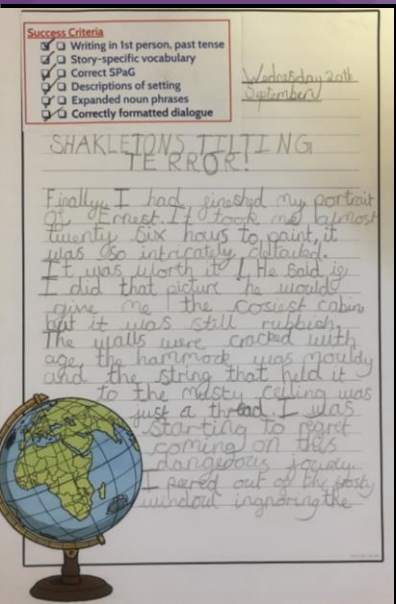 Success Criteria
Writing in 1st person, past tense
Story-specific vocabulary
Correct SPaG
Descriptions of setting
Expanded noun phrases
Correctly formatted dialogue
Wednesday 20th
September
SHAKLETONS TILTING
TERROR!
Finally, I had fineshed my portrait
of Ernest. It took me almost
twenty six hours to paint, it
was so intricately detailed.
It was worth it! He said if
I did that picture he would
give me the cosiest cabin,
but it was still rubbish.
The walls were cracked with
age, the hammock was mouldy
and the string that held it
to the musty ceiling was
just a thread. I was
starting to regret
coming on this
dangeous jouney.
I peered out of the frosty
window ingnoring the